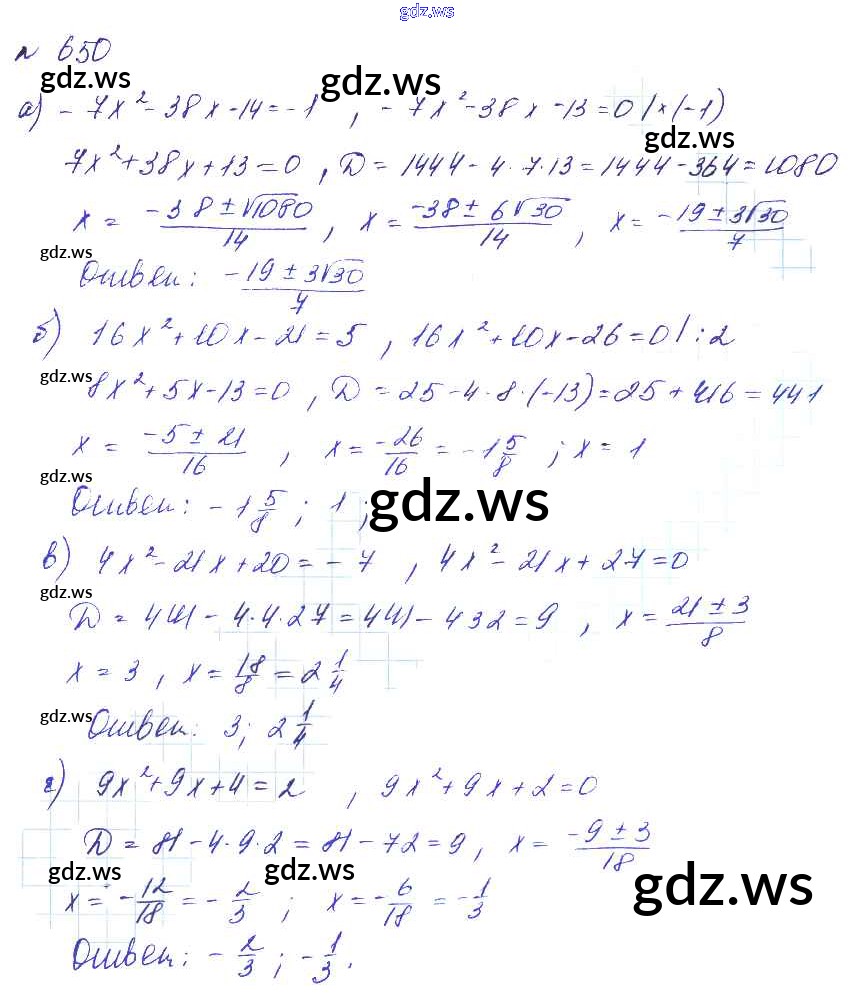 gdz.ws
№ 650
gdz.ws gdz.ws
а) -7x² - 38x - 14 = -1 , -7x² - 38x - 13 = 0 | × (-1)
gdz.ws
7x² + 38x + 13 = 0 , D = 1444 - 4·7·13 = 1444 - 364 = 1080
x = (-38 ± √1080)/14 , x = (-38 ± 6√30)/14 , x = (-19 ± 3√30)/7
gdz.ws
Ответ: (-19 ± 3√30)/7
б) 16x² + 10x - 21 = 5 , 16x² + 10x - 26 = 0 | : 2
gdz.ws
8x² + 5x - 13 = 0 , D = 25 - 4·8·(-13) = 25 + 416 = 441
x = (-5 ± 21)/16 , x = -26/16 = -1 5/8 ; x = 1
gdz.ws
Ответ: -1 5/8 ; 1 ;
gdz.ws
в) 4x² - 21x + 20 = -7 , 4x² - 21x + 27 = 0
gdz.ws
D = 441 - 4·4·27 = 441 - 432 = 9 , x = (21 ± 3)/8
x = 3 , x = 18/8 = 2 1/4
gdz.ws
Ответ: 3; 2 1/4
г) 9x² + 9x + 4 = 2 , 9x² + 9x + 2 = 0
D = 81 - 4·9·2 = 81 - 72 = 9 , x = (-9 ± 3)/18
gdz.ws gdz.ws gdz.ws
x = -12/18 = -2/3 ; x = -6/18 = -1/3
Ответ: -2/3 ; -1/3.